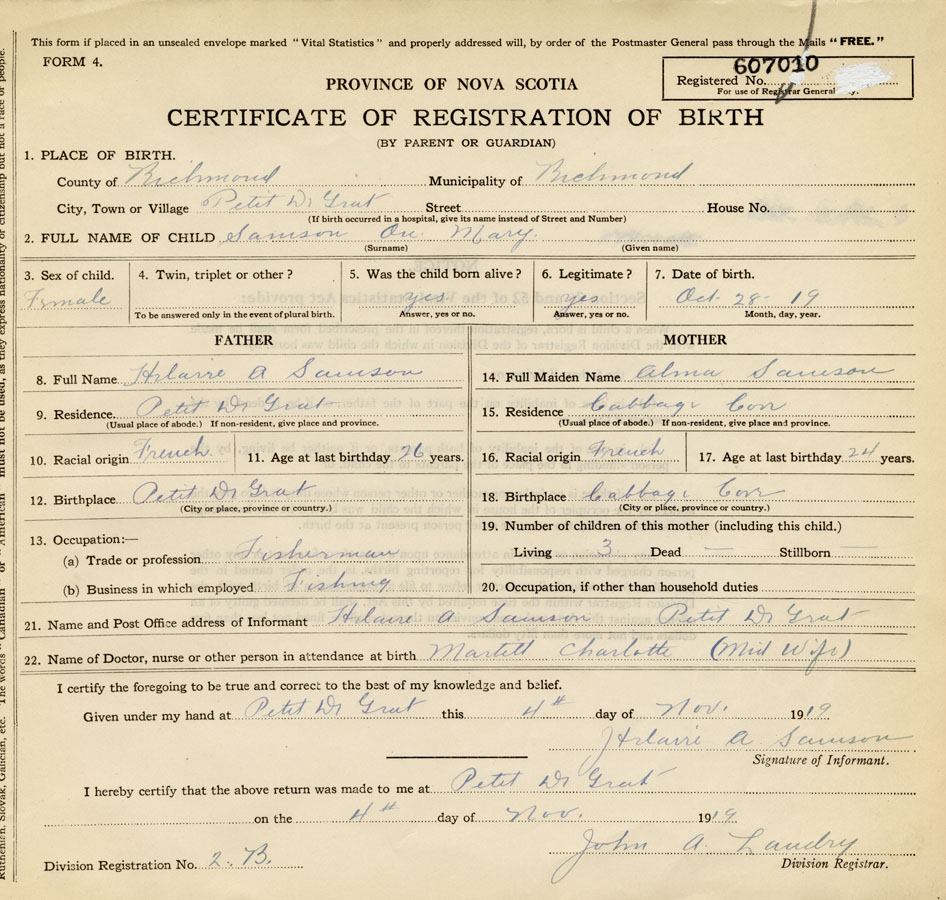 This form if placed in an unsealed envelope marked "Vital Statistics" and properly addressed will, by order of the Postmaster General pass through the Mails "FREE."
FORM 4.
607010
Registered No.
For use of Registrar General
PROVINCE OF NOVA SCOTIA
CERTIFICATE OF REGISTRATION OF BIRTH
(BY PARENT OR GUARDIAN)
1. PLACE OF BIRTH.
County of Richmond Municipality of Richmond
City, Town or Village Petit De Grat Street House No.
(If birth occurred in a hospital, give its name instead of Street and Number)
2. FULL NAME OF CHILD Samson Mary.
(Surname) (Given name)
3. Sex of child. 4. Twin, triplet or other? 5. Was the child born alive? 6. Legitimate? 7. Date of birth.
Female yes yes Oct - 28 - 19
To be answered only in the event of plural birth. Answer, yes or no. Answer, yes or no. Month, day, year.
FATHER MOTHER
8. Full Name Hilaire A Samson 14. Full Maiden Name Alma Samson
9. Residence. Petit De Grat 15. Residence Cabbage Cove
(Usual place of abode.) If non-resident, give place and province. (Usual place of abode.) If non-resident, give place and province.
10. Racial origin French 11. Age at last birthday 26 years. 16. Racial origin French 17. Age at last birthday 24 years.
12. Birthplace Petit De Grat 18. Birthplace Cabbage Cove
(City or place, province or country.) (City or place, province or country.)
13. Occupation:— 19. Number of children of this mother (including this child.)
(a) Trade or profession Fisherman Living 3 Dead — Stillborn —
(b) Business in which employed Fishing 20. Occupation, if other than household duties
21. Name and Post Office address of Informant Hilaire A Samson Petit De Grat
22. Name of Doctor, nurse or other person in attendance at birth Martell Charlotte (Mid Wife)
I certify the foregoing to be true and correct to the best of my knowledge and belief.
Given under my hand at Petit De Grat this 4th day of Nov. 1919
Hilaire A. Samson
Signature of Informant.
I hereby certify that the above return was made to me at Petit De Grat
on the 4th day of Nov. 1919
John A. Landry
Division Registration No. 2-B. Division Registrar.